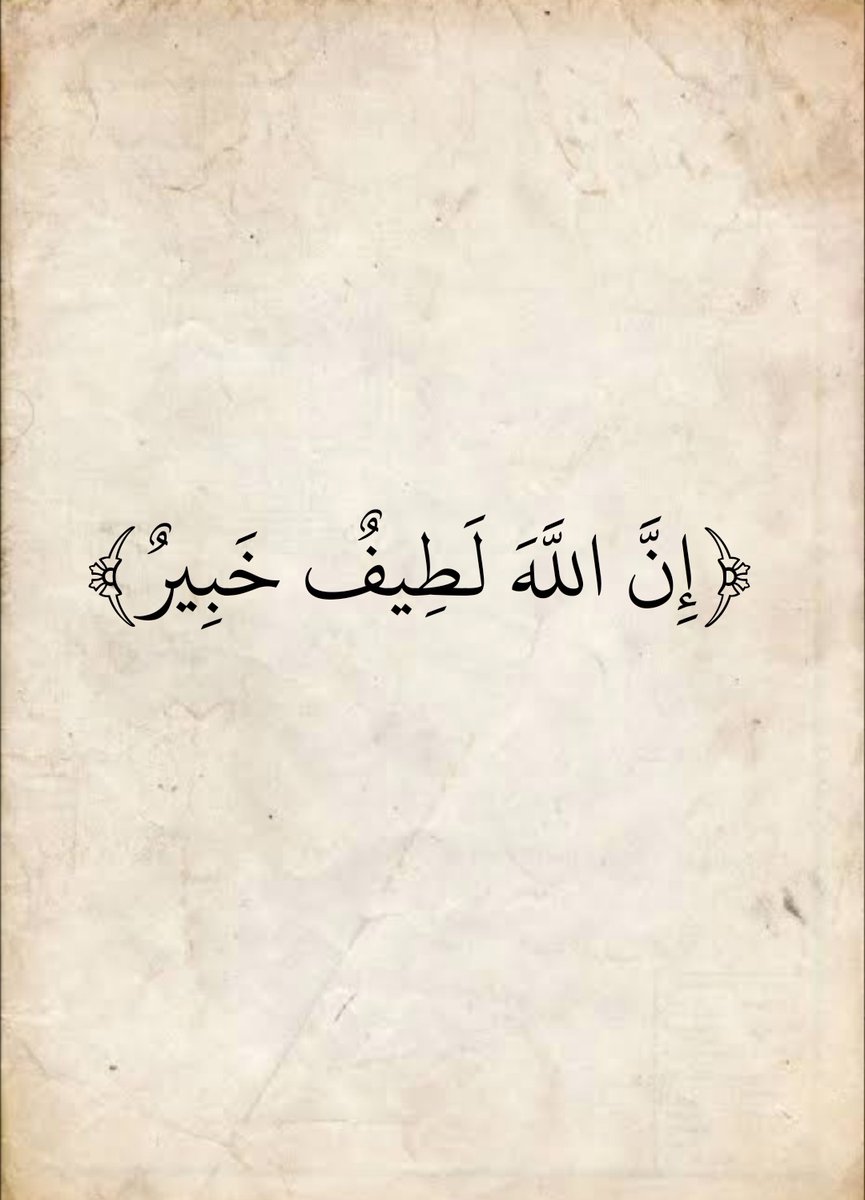 ﴿إِنَّ اللَّهَ لَطِيفٌ خَبِيرٌ﴾